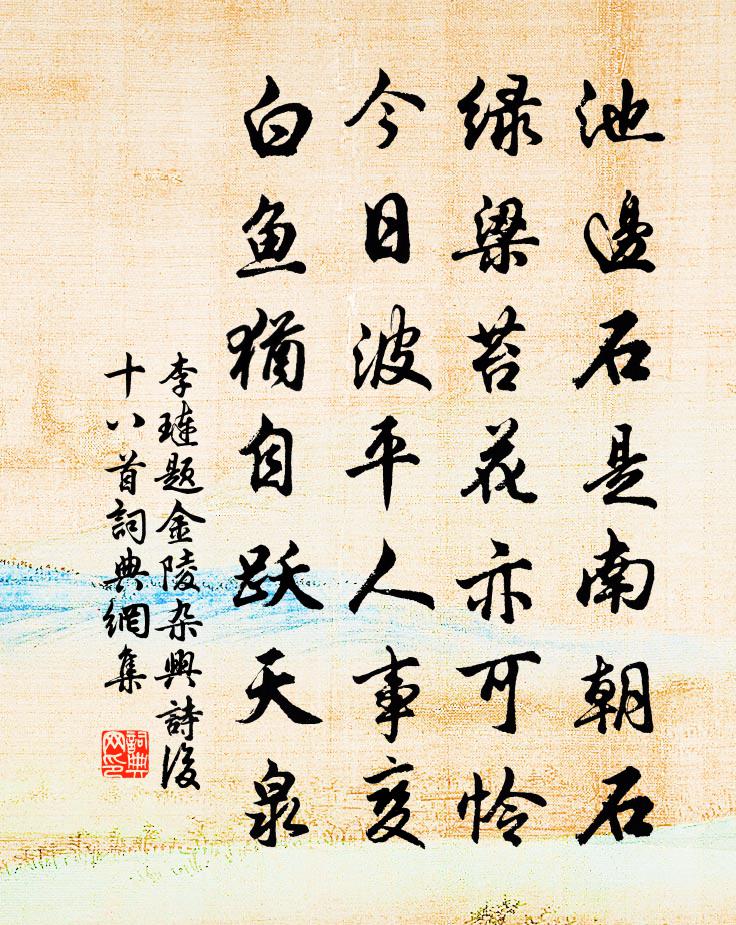 池邊石是南朝石
绿梁苔花亦可怜
今日波平人事变
白鱼猶自跃天泉
李璉题金陵杂興詩後
十八首詞典網集
詞典网印